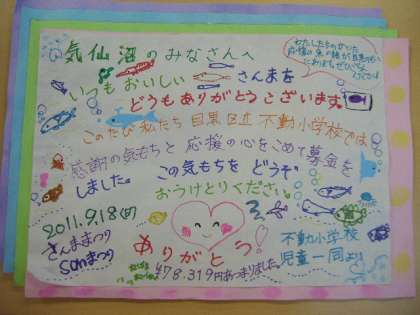 気仙沼のみなさんへ
いつもおいしい さんまを
どうもありがとうございます。
このたび私たち目黒区立不動小学校では
感謝の気もちと応援の心をこめて募金を
しました。 この気もちをどうぞ
おうけとりください。
2011.9.18(日)
さんままつり
sonまつり
ありがとう!
478.319円あつまりました。
不動小学校
児童一同より
わたしたちのかいた
応援の魚の絵が目黒のさんま